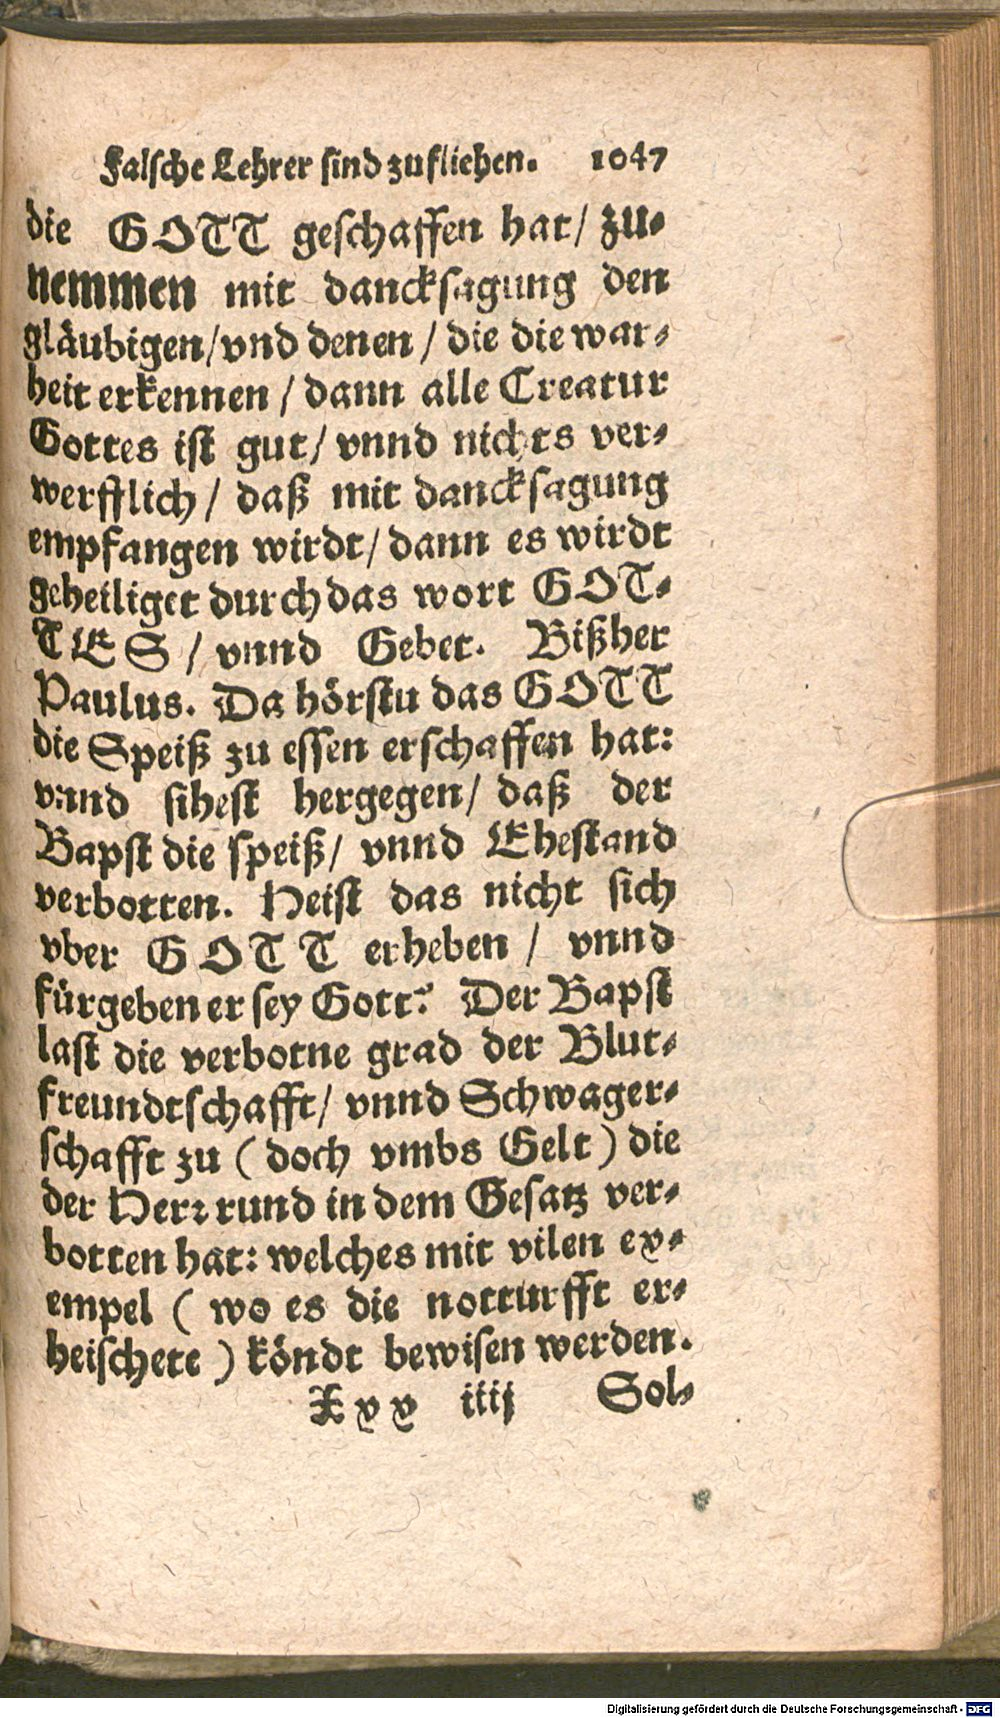 Falsche Lehrer sind zufliehen. 1047
die GOTT geschaffen hat/ zu-
nemmen mit dancksagung den
gläubigen/vnd denen/ die die war-
heit erkennen/ dann alle Creatur
Gottes ist gut/ vnnd nichts ver-
werfflich/ daß mit dancksagung
empfangen wirdt/ dann es wirdt
geheiliget durch das wort GOT-
TES/ vnnd Gebet. Bißher
Paulus. Da hörstu das GOTT
die Speiß zu essen erschaffen hat:
vnnd sihest hergegen/ daß der
Bapst die speiß/ vnnd Ehestand
verbotten. Heist das nicht sich
vber GOTT erheben/ vnnd
fürgeben er sey Gott? Der Bapst
last die verbotne grad der Blut-
freundtschafft/ vnnd Schwager-
schafft zu (doch vmbs Gelt) die
der Herr rund in dem Gesatz ver-
botten hat: welches mit vilen ex-
empel (wo es die notturfft er-
heischete) köndt bewisen werden.
Xxx iiij Sol-
Digitalisierung gefördert durch die Deutsche Forschungsgemeinschaft - DFG